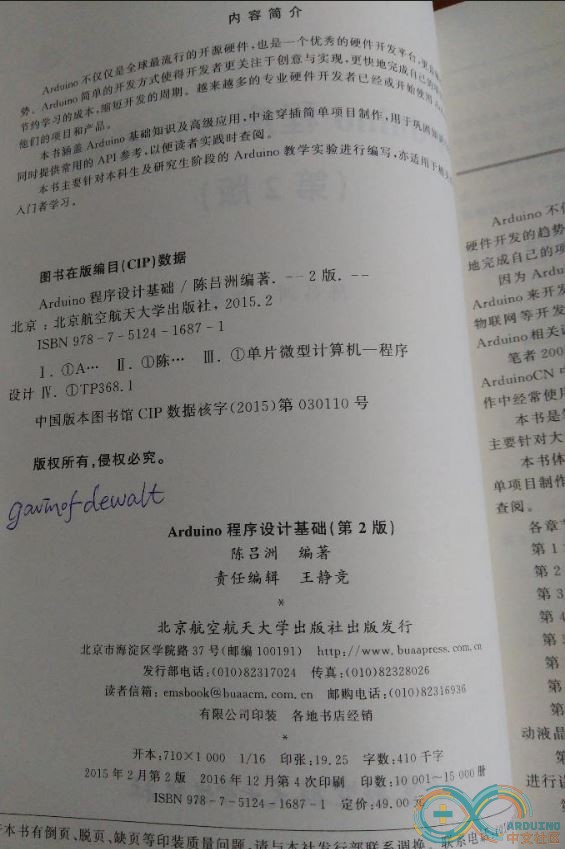 内容简介
Arduino 不仅仅是全球最流行的开源硬件,也是一个优秀的硬件开发平台,更是
势。Arduino 简单的开发方式使得开发者更关注于创意与实现,更快地完成自己的项
节约学习的成本,缩短开发的周期。越来越多的专业硬件开发者已经或开始使用
他们的项目和产品。
本书涵盖 Arduino 基础知识及高级应用,中途穿插简单项目制作,用于巩固
同时提供常用的 API 参考,以便读者实践时查阅。
本书主要针对本科生及研究生阶段的 Arduino 教学实验进行编写,亦适用于
入门者学习。
图书在版编目(CIP)数据
Arduino 程序设计基础 / 陈吕洲编著. --2 版. --
北京:北京航空航天大学出版社,2015.2
ISBN 978-7-5124-1687-1
Ⅰ. ①A… Ⅱ. ①陈… Ⅲ. ①单片微型计算机—程序
设计 Ⅳ. ①TP368.1
中国版本图书馆 CIP 数据核字(2015)第 030110 号
版权所有,侵权必究。
gavinof-dewalt
Arduino 程序设计基础(第 2 版)
陈吕洲 编著
责任编辑 王静竞
*
北京航空航天大学出版社出版发行
北京市海淀区学院路 37 号(邮编 100191) http://www.buaapress.com.cn
发行部电话:(010)82317024 传真:(010)82328026
读者信箱:emsbook@buaacm.com.cn 邮购电话:(010)82316936
有限公司印装 各地书店经销
*
开本:710×1 000 1/16 印张:19.25 字数:410 千字
2015 年 2 月第 2 版 2016 年 12 月第 4 次印刷 印数:10 001~15 000 册
ISBN 978-7-5124-1687-1 定价:49.00 元
本书有倒页、脱页、缺页等印装质量问题,请与本社发行部联系调换。联系电话
(第 2 版)
Arduino 不
硬件开发的趋势
地完成自己的项
因为 Ardu
Arduino 来开发
物联网等开发
Arduino 相关
笔者 200
ArduinoCN
作中经常使用
本书是
主要针对大
本书体
单项目制作
查阅。
各章节
第 1
第 2
第 3
第 4
第
第
第
第
动液晶
第
进行设
ARDUINO
中文社区